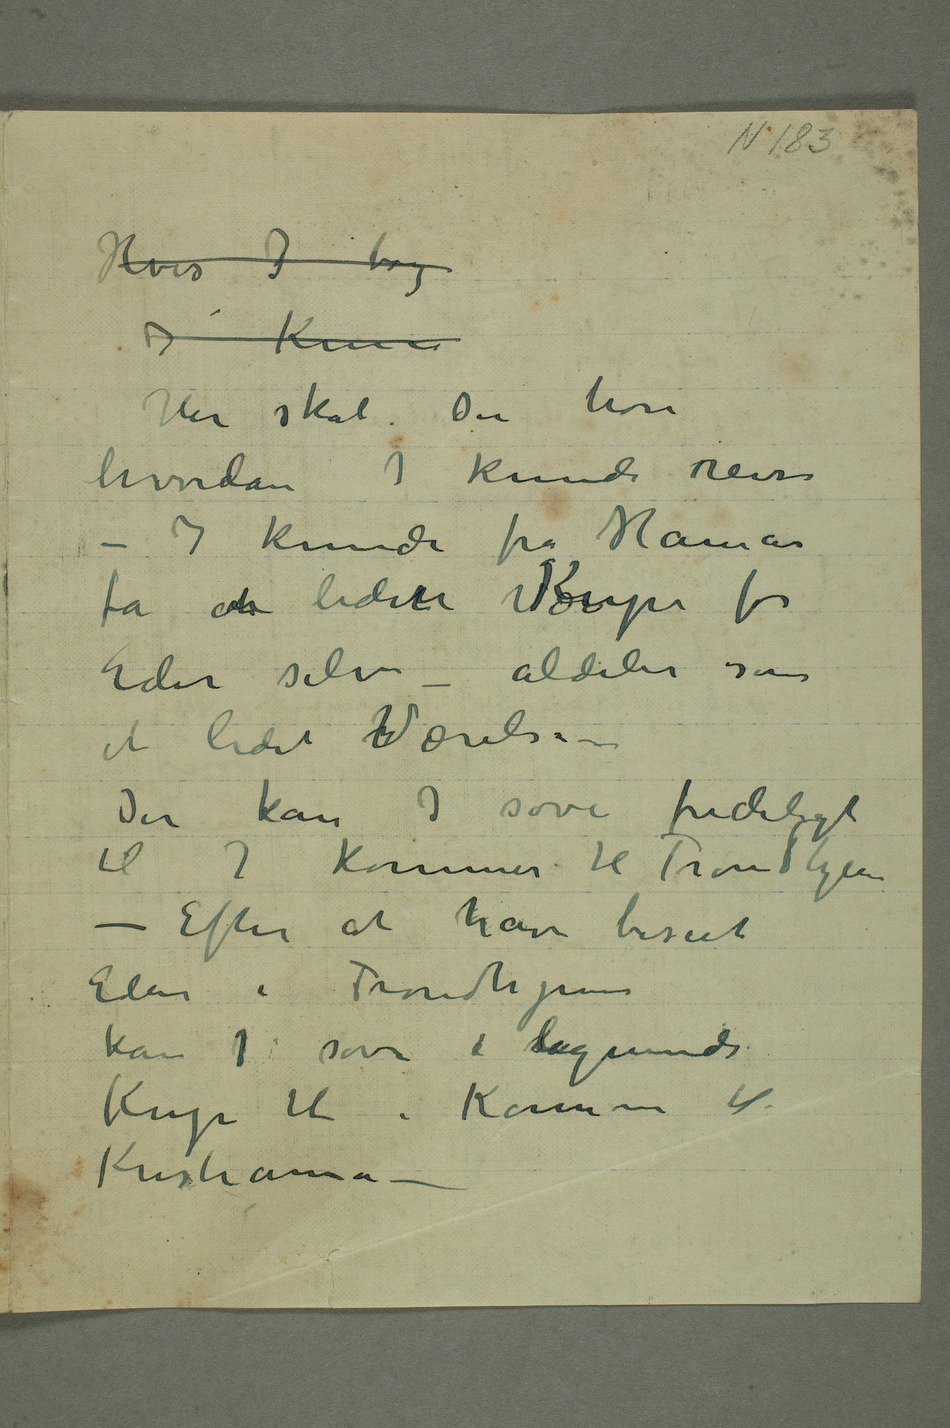 N 183
Hvis I
I Kunne
Her skal Du høre
hvordan I kunde reise
– I kunde fra Hamar
få en liden Kupe for
Eder selv – aldeles som
et lidet Værelse –
Der kan I sove fredeligt
til I kommer til Trondhjem
– Efter at have beseet
Eder i Trondhjem
kan I sove i lignende
Kupe til i Kommer til
Kristiania –